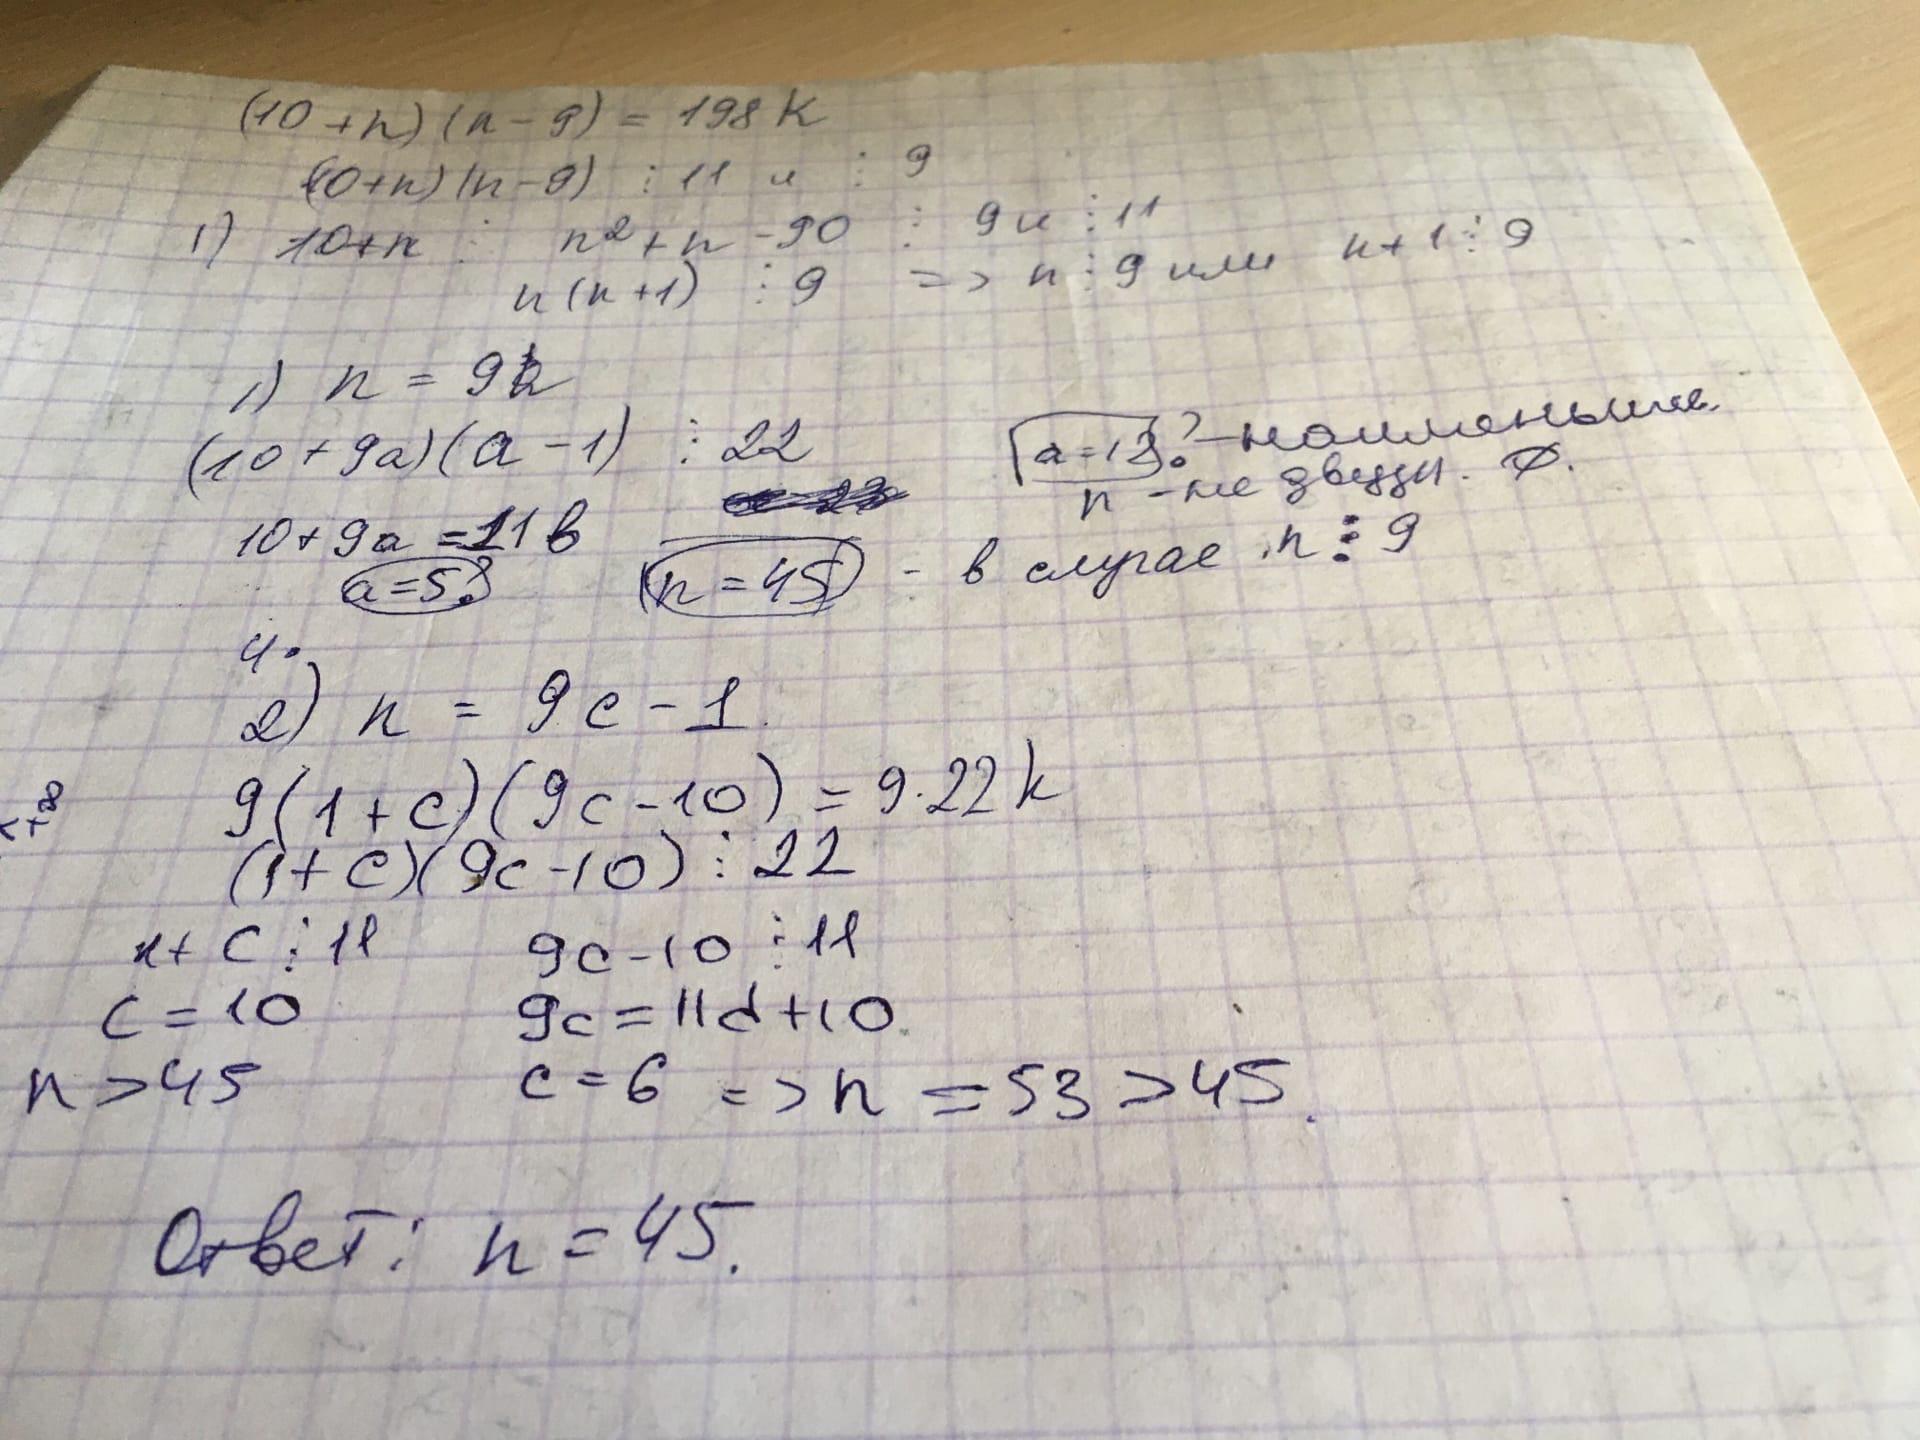 (10+n)(n-9) = 198k
(10+n)(n-9) ⋮ 11 и ⋮ 9
1) 10+n ⋮ n²+n-90 ⋮ 9 и ⋮ 11
n(n+1) ⋮ 9 => n ⋮ 9 или n+1 ⋮ 9
1) n = 9a
(10+9a)(a-1) ⋮ 22
a=12? - наименьшее.
n - не двузн. ∅.
10+9a = 11b
a=5?
n=45 - в случае n ⋮ 9
4.
2) n = 9c-1.
9(1+c)(9c-10) = 9·22k
(1+c)(9c-10) ⋮ 22
1+c ⋮ 11 9c-10 ⋮ 11
c=10 9c=11d+10.
n>45 c=6 => n = 53 > 45.
Ответ: n=45.